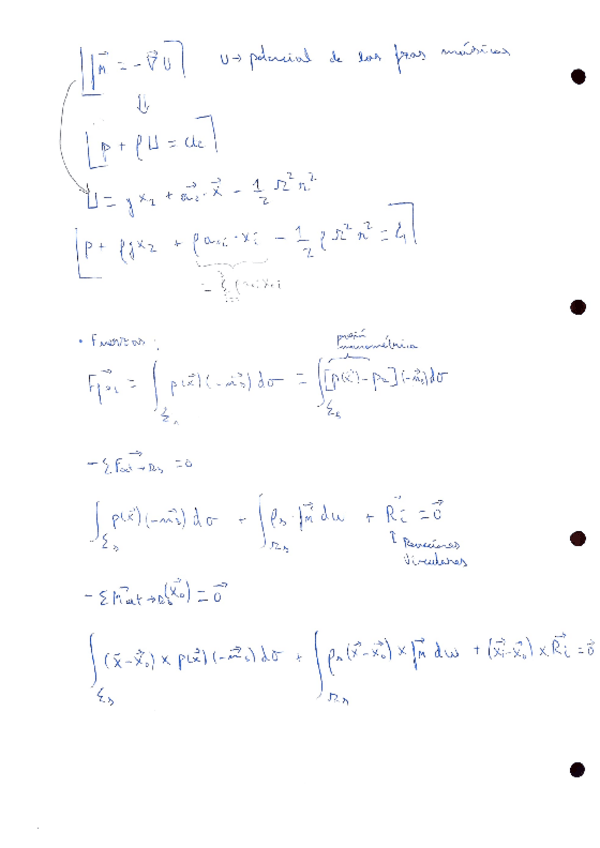 f⃗ₘ = -∇⃗U   U → potencial de las fzas másicas
⇓
p + ρU = cte
U = g x₂ + a⃗ᵢ · x⃗ - 1/2 Ω² r²
p + ρ g x₂ + ρ aᵢ · xᵢ - 1/2 ρ Ω² r² = C₁
• Fuerzas:
presión manométrica
= ∫_Σs p(x⃗)(-n⃗s) dσ = ∫_Σs [p(x⃗) - pa](-n⃗s) dσ
- Σ F⃗ext→Ωs = 0
∫_Σs p(x⃗)(-n⃗s) dσ + ∫_Ωs ρs · f⃗ₘ dω + R⃗ᵢ = 0⃗
↑ Reacciones
vinculares
- Σ M⃗ext→Ωs(x⃗₀) = 0⃗
∫_Σs (x⃗ - x⃗₀) × p(x⃗)(-n⃗s) dσ + ∫_Ωs ρs (x⃗ - x⃗₀) × f⃗ₘ dω + (x⃗ᵢ - x⃗₀) × R⃗ᵢ = 0⃗